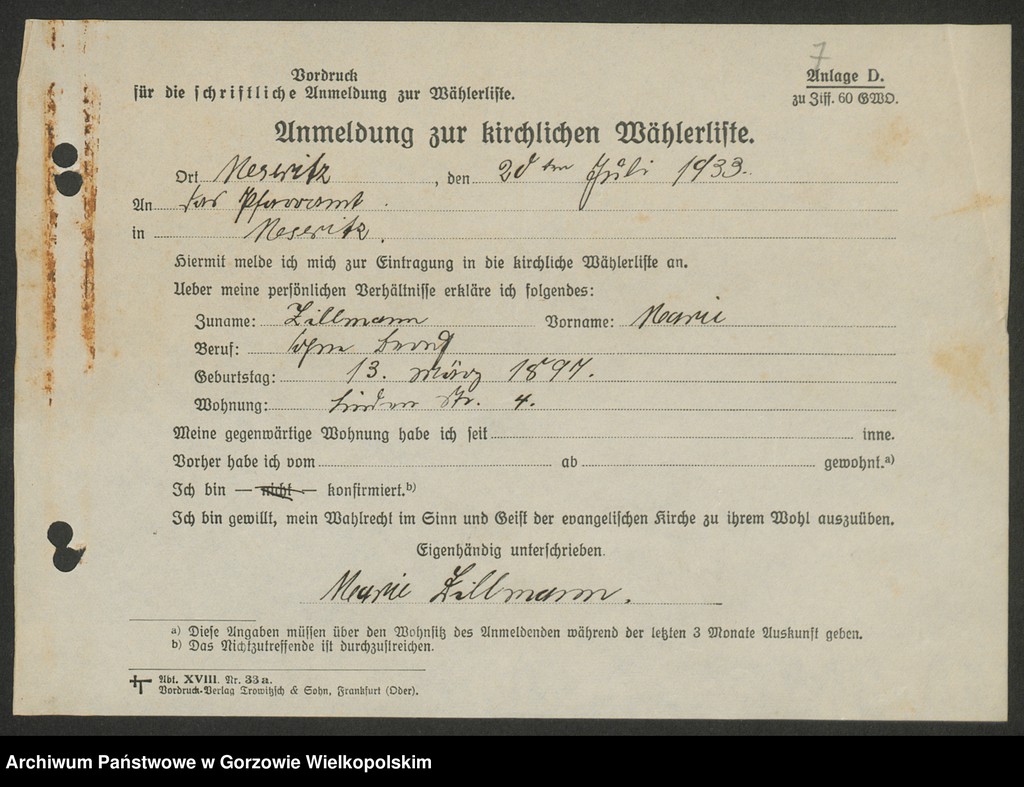 7
Vordruck
für die schriftliche Anmeldung zur Wählerliste.
Anlage D.
zu Ziff. 60 GWO.
Anmeldung zur kirchlichen Wählerliste.
Ort Meseritz, den Juli 1933.
An das Pfarramt.
in Meseritz.
Hiermit melde ich mich zur Eintragung in die kirchliche Wählerliste an.
Ueber meine persönlichen Verhältnisse erkläre ich folgendes:
Zuname: Zillmann Vorname: Marie
Beruf: ohne Beruf
Geburtstag: 13. März 1897.
Wohnung: Linden Str. 4.
Meine gegenwärtige Wohnung habe ich seit inne.
Vorher habe ich vom ab gewohnt.a)
Ich bin — nicht — konfirmiert.b)
Ich bin gewillt, mein Wahlrecht im Sinn und Geist der evangelischen Kirche zu ihrem Wohl auszuüben.
Eigenhändig unterschrieben.
Marie Zillmann.
a) Diese Angaben müssen über den Wohnsitz des Anmeldenden während der letzten 3 Monate Auskunft geben.
b) Das Nichtzutreffende ist durchzustreichen.
Abt. XVIII. Nr. 33a.
Vordruck-Verlag Trowitzsch & Sohn, Frankfurt (Oder).
Archiwum Państwowe w Gorzowie Wielkopolskim